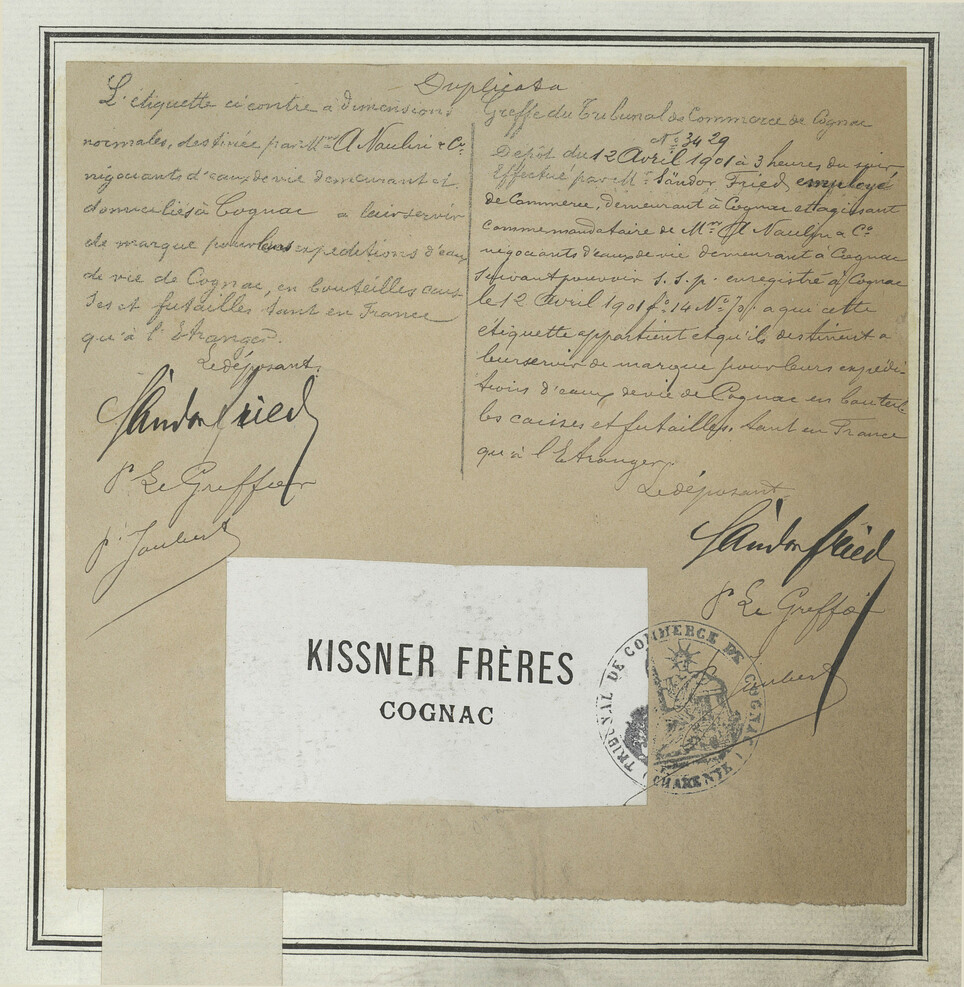 Duplicata
L'étiquette ci contre à dimensions
normales, destinée par Mrs A Naulin & Co
négociants d'eaux de vie demeurant et
domiciliés à Cognac a leur servir
de marque pour leurs expéditions d'eaux
de vie de Cognac, en bouteilles cais
ses et futailles tant en France
qu'à l'Etranger.
Le déposant.
Sándor Fried
Pr Le Greffier
Joubert
Greffe du Tribunal de Commerce de Cognac
No 3429
Dépôt du 12 Avril 1901 à 3 heures du soir
Effectué par Mr Sándor Fried employé
de Commerce, demeurant à Cognac et agissant
comme mandataire de Mrs A Naulin & Co
négociants d'eaux de vie demeurant à Cognac
suivant pouvoir s.s.p. enregistré à Cognac
le 12 Avril 1901 fo 14 No a qui cette
étiquette appartient et qu'ils destinent a
leur servir de marque pour leurs expédi-
tions d'eaux de vie de Cognac en bouteil-
les caisses et futailles, tant en France
qu'à l'Etranger.
Le déposant
Sándor Fried
Pr Le Greffier
Joubert
KISSNER FRÈRES
COGNAC
TRIBUNAL DE COMMERCE DE COGNAC
(CHARENTE)